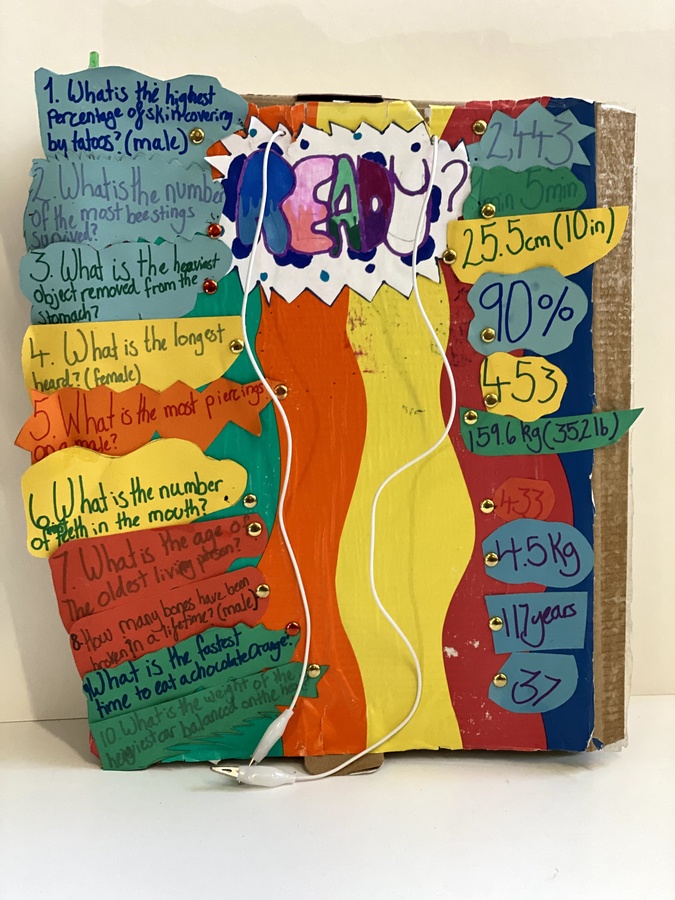 1. What is the highest
percentage of skin covering
by tatoos? (male)
2. What is the number
of the most bee stings
survived?
3. What is the heaviest
object removed from the
stomach?
4. What is the longest
beard? (female)
5. What is the most piercings
on a male?
6. What is the number
of teeth in the mouth?
7. What is the age of
the oldest living person?
8. How many bones have been
broken in a lifetime? (male)
What is the fastest
time to eat a chocolate Orange?
10. What is the weight of the
car balanced on the
READY?
2,443
in 5min
25.5cm (10in)
90%
453
159.6 kg (352 lb)
433
4.5Kg
117 years
37